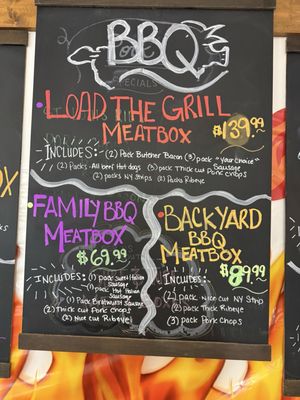 BBQ
SPECIALS
• LOAD THE GRILL
MEATBOX
$139.99
INCLUDES:- (2) Pack Butcher Bacon (3) pack "Your Choice"
Sausage
(2) Packs All beef Hot dogs (3) pack Thick cut Pork Chops
(2) packs NY Strips (2) Packs Ribeye
• FAMILY BBQ
MEATBOX
$69.99
INCLUDES: (1) pack Sweet Italian
Sausage
(1) pack Hot Italian
Sausage
(1) Pack Bratwurst Sausage
(2) Thick cut Pork Chops
(2) Nice cut Ribeye
• BACKYARD
BBQ
MEATBOX
$89.99
INCLUDES:
(2) pack Nice cut NY Strip
(2) pack Thick Ribeye
(3) pack Pork Chops